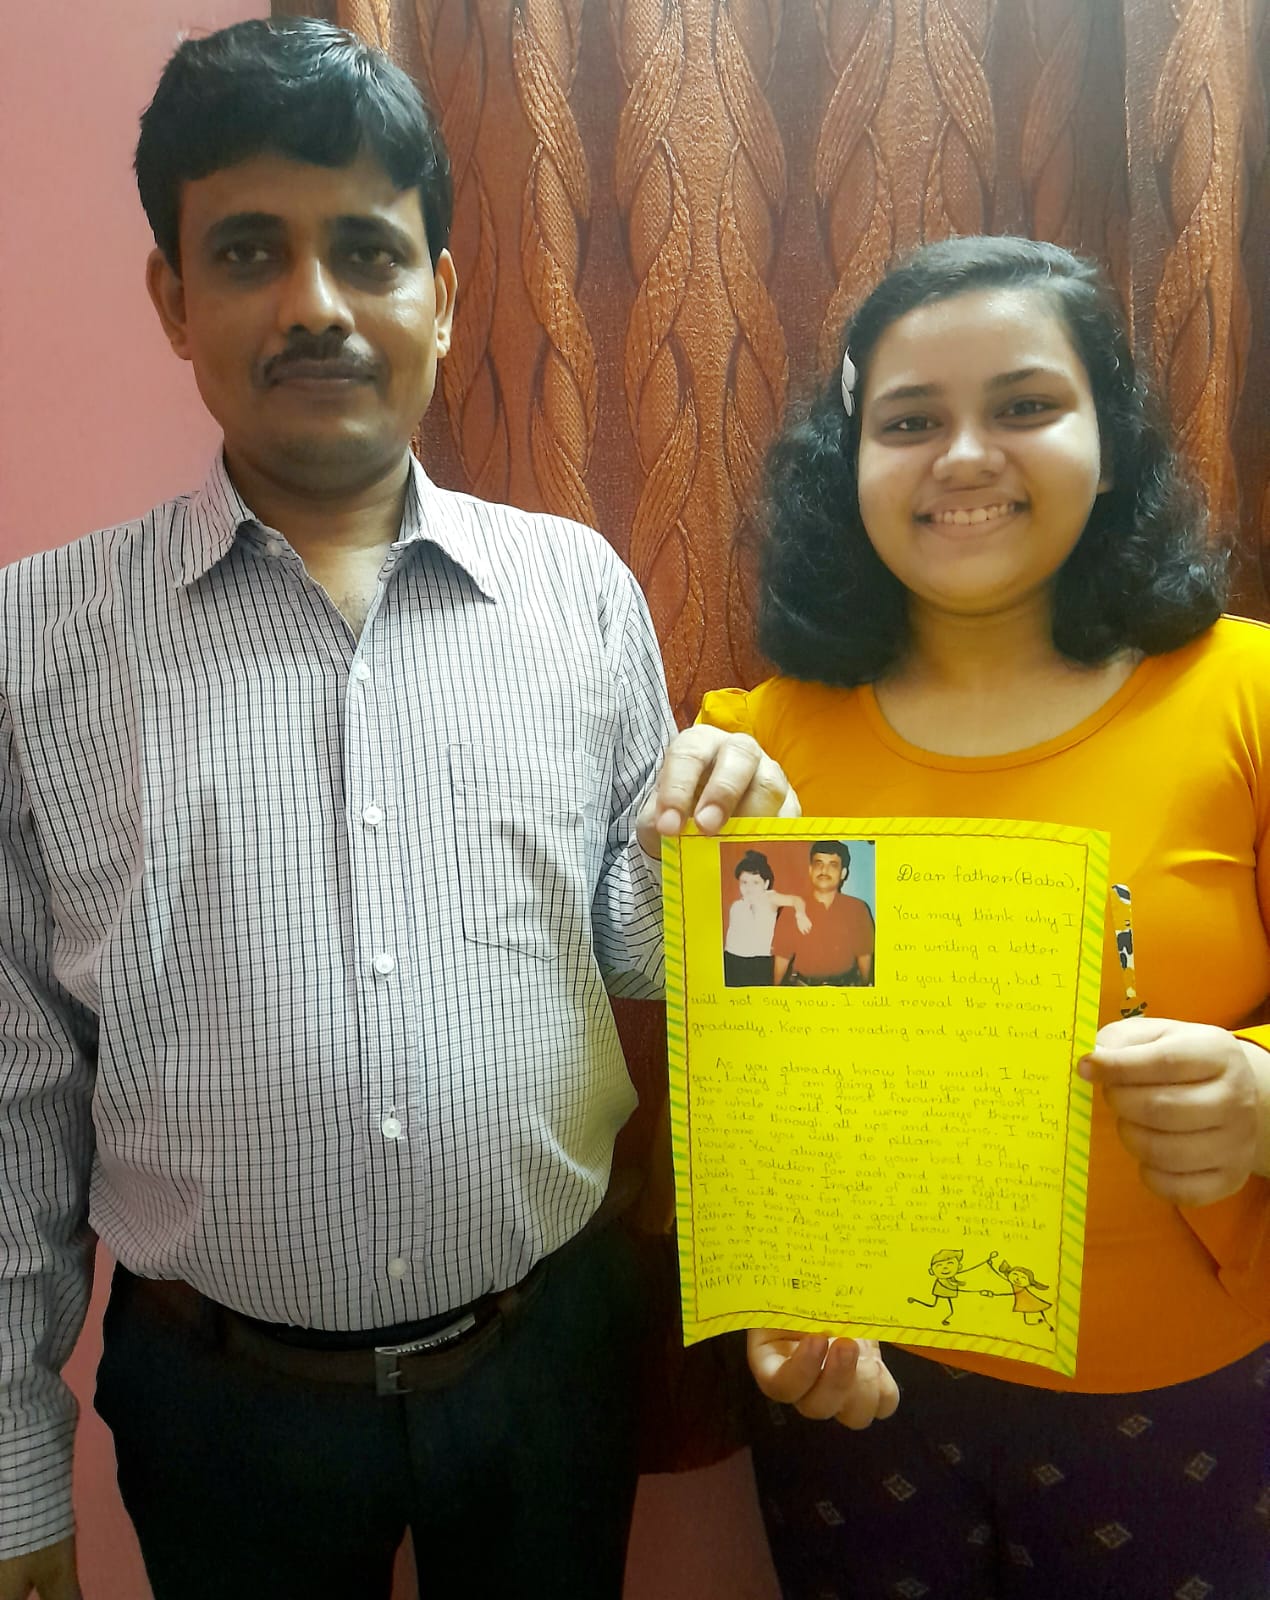 Dear father(Baba),
You may think why I
am writing a letter
to you today, but I
will not say now. I will reveal the reason
gradually. Keep on reading and you'll find out.
As you already know how much I love
you, today I am going to tell you why you
are one of my most favourite person in
the whole world. You were always there by
my side through all ups and downs. I can
compare you with the pillars of my
house. You always do your best to help me
find a solution for each and every problems
which I face. Inspite of all the fightings
I do with you for fun, I am grateful to
you for being such a good and responsible
father to me. Also you must know that you
are a great friend of mine.
You are my real hero and
take my best wishes on
this father's day.
HAPPY FATHER'S DAY
from
Your daughter